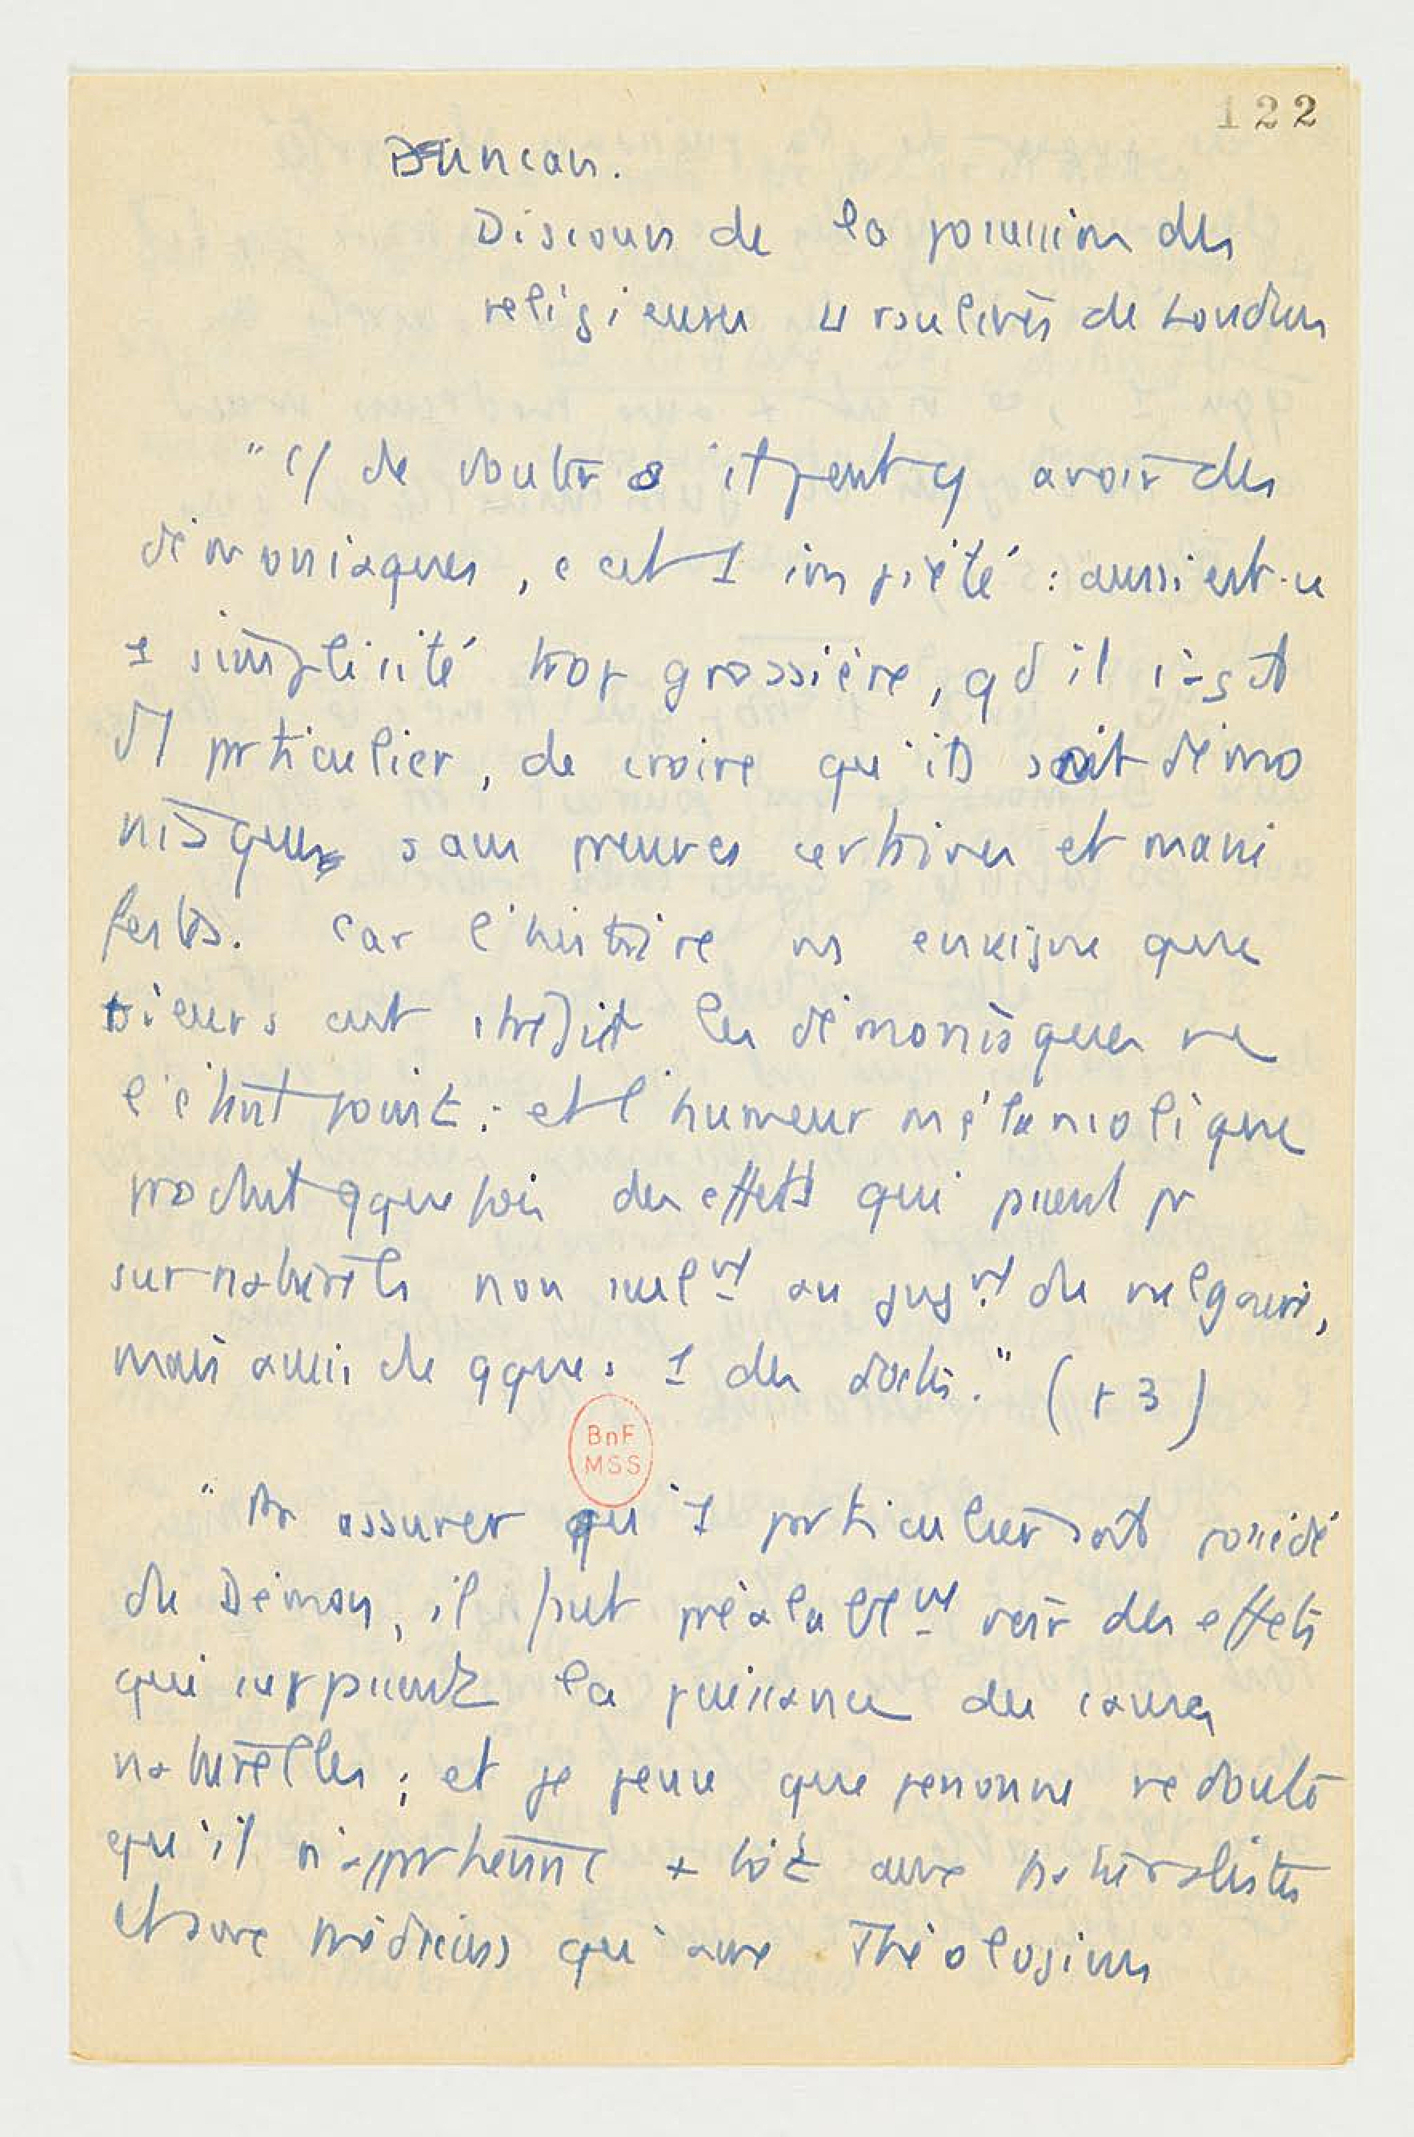 122
Duncan.
Discours de la possession des
religieuses Ursulines de Loudun
" de douter s'il peut y avoir des
démoniaques, c'est 1 impiété : aussi est-ce
1 simplicité trop grossière, qd il s'agit
d'1 particulier, de croire qu'il soit démo
niaque sans preuves certaines et mani
festes. Car l'histoire ns enseigne que
plusieurs ont contrefait les démoniaques ne
l'étant point : et l'humeur mélancolique
produit qquefois des effets qui passent pr
surnaturels non seulmt au jugmt du vulgaire,
mais aussi de qques 1 des doctes." (p 3)
BnF
MSS
" Pr assurer qu'1 particulier soit possédé
du Démon, il faut préalablmt voir des effets
qui surpassent la puissance des causes
naturelles ; et je pense que personne ne doute
qu'il n'appartienne + tôt aux naturalistes
et aux médecins qu'aux Théologiens